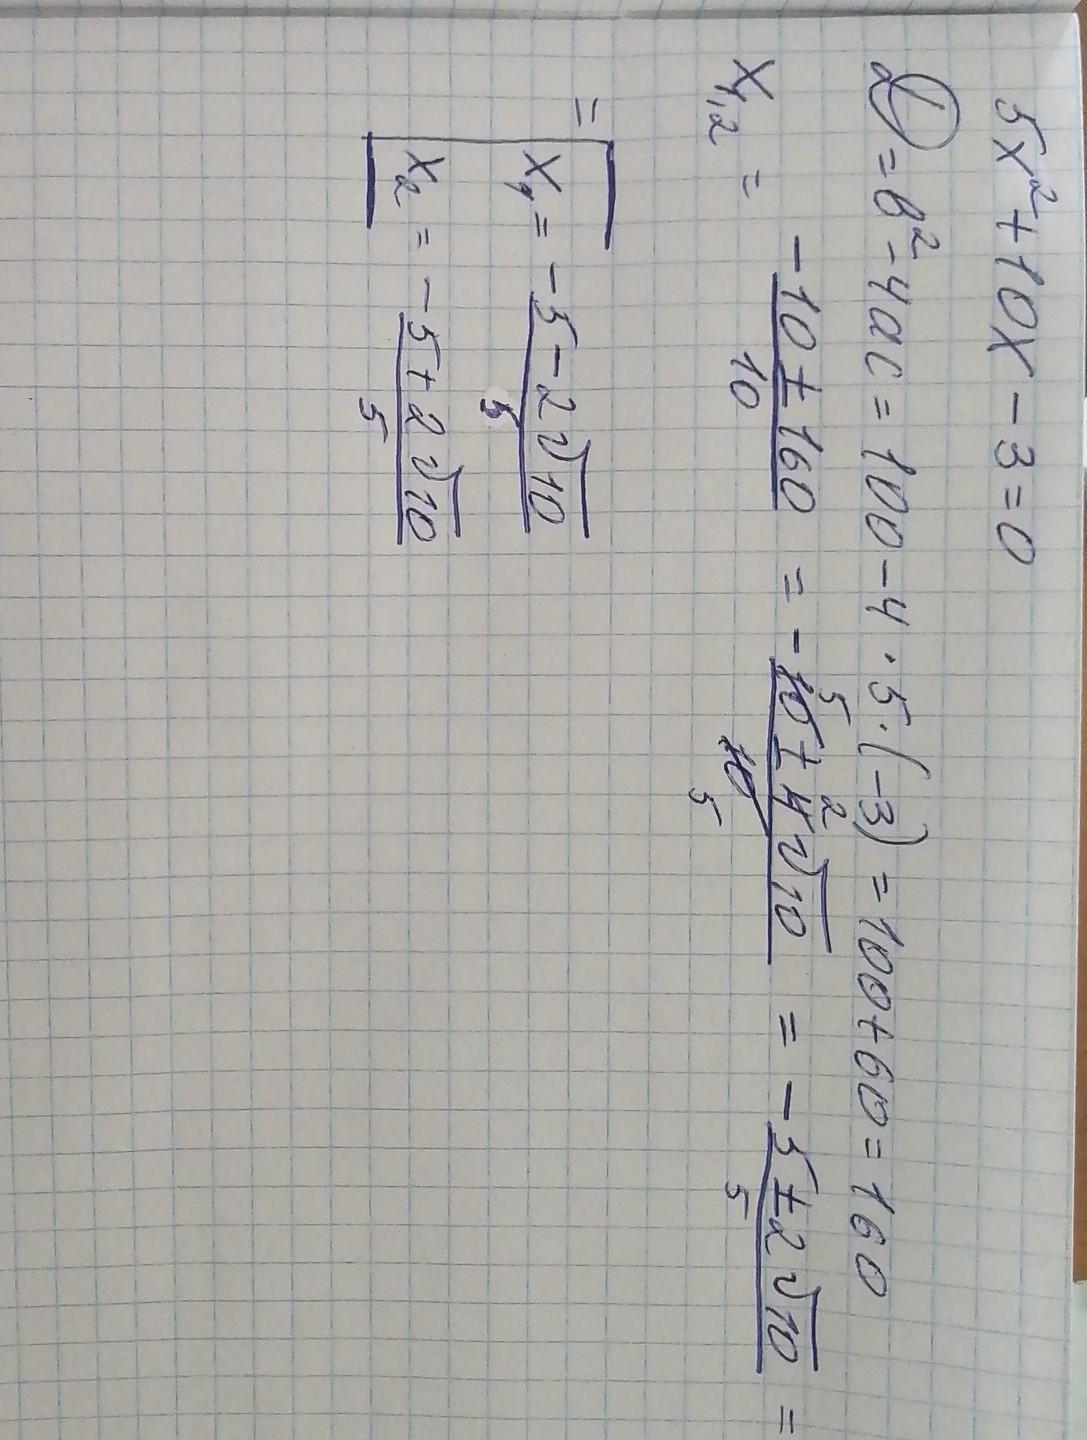 5x² + 10x - 3 = 0
D = b² - 4ac = 100 - 4 · 5 · (-3) = 100 + 60 = 160
x₁,₂ = (-10 ± 160)/10 = (-10 5 ± 4 2 √10)/(10 5) = (-5 ± 2√10)/5 =
= [ x₁ = (-5 - 2√10)/5
x₂ = (-5 + 2√10)/5